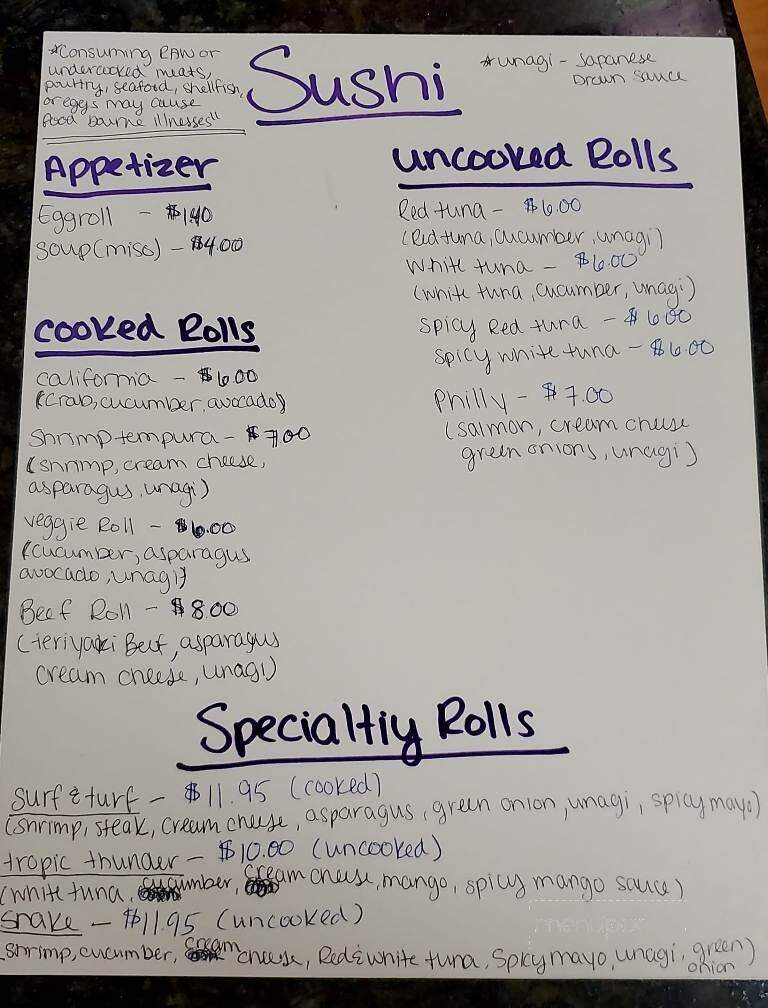 *Consuming RAW or
undercooked meats,
poultry, seafood, shellfish,
or eggs may cause
food bourne illnesses"
Sushi
*unagi - Japanese
Brown Sauce
Appetizer
Eggroll - $1.40
Soup (miso) - $4.00
Cooked Rolls
California - $6.00
(Crab, cucumber, avocado)
Shrimp tempura - $7.00
(shrimp, cream cheese,
asparagus, unagi)
Veggie Roll - $6.00
(cucumber, asparagus
avocado, unagi)
Beef Roll - $8.00
(teriyaki Beef, asparagus
cream cheese, unagi)
Uncooked Rolls
Red tuna - $6.00
(Red tuna, cucumber, unagi)
White tuna - $6.00
(white tuna, cucumber, unagi)
Spicy Red tuna - $6.00
Spicy white tuna - $6.00
Philly - $7.00
(salmon, cream cheese
green onions, unagi)
Specialtiy Rolls
Surf & turf - $11.95 (cooked)
(shrimp, steak, cream cheese, asparagus, green onion, unagi, spicy mayo)
tropic thunder - $10.00 (uncooked)
(white tuna, cucumber, cream cheese, mango, spicy mango sauce)
Snake - $11.95 (uncooked)
shrimp, cucumber, cream cheese, Red & white tuna, Spicy mayo, unagi, green onion)
menupix